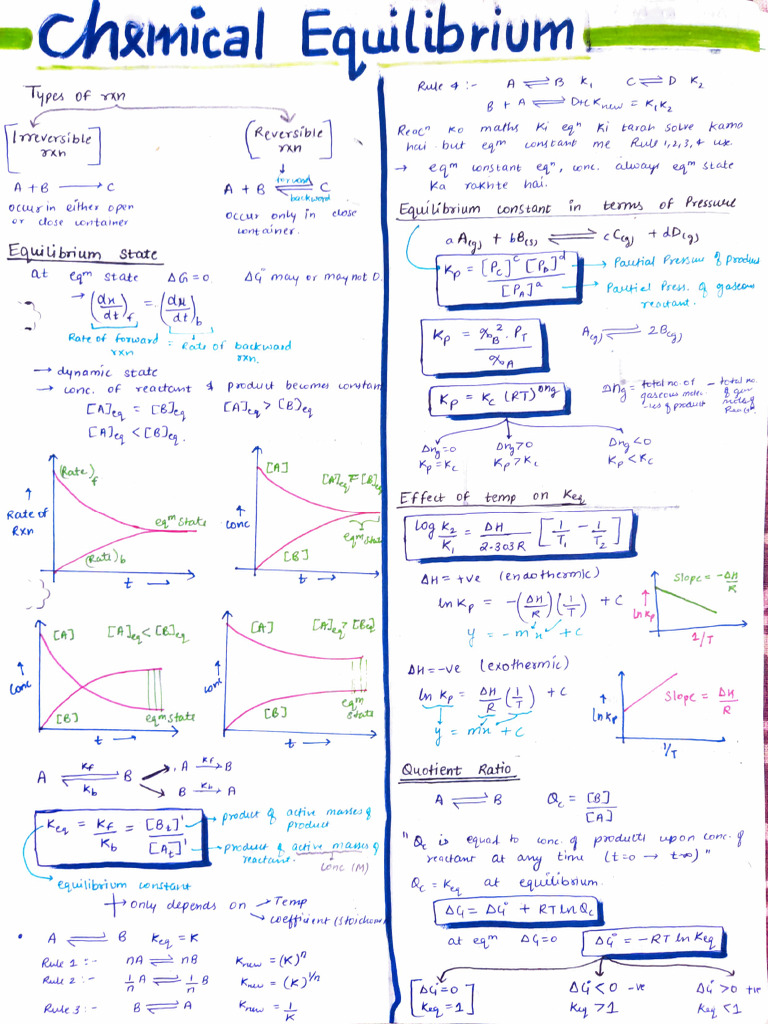 Chemical Equilibrium
Types of rxn
[Irreversible rxn]
(Reversible rxn]
A + B ⟶ C
occur in either open
or close container
forward
A + B ⇌ C
backward
occur only in close
container.
Equilibrium state
at eqm state ΔG = 0 ΔG° may or may not 0.
→ (dx/dt)f = (dx/dt)b
Rate of forward rxn = Rate of backward rxn.
→ dynamic state
→ conc. of reactant & product becomes constant
[A]eq = [B]eq [A]eq > [B]eq
[A]eq < [B]eq.
(Rate)f
Rate of Rxn
eqm state
(Rate)b
t →
[A]
[A]eq = [B]eq
conc
eqm state
[B]
t →
[A] [A]eq < [B]eq
conc
[B] eqm state
t →
[A] [A]eq > [B]eq
conc
[B] eqm state
t →
A ⇌ B Kf Kb
A Kf→ B
B Kb→ A
Keq = Kf/Kb = [Bt]¹/[At]¹
→ product of active masses of product
→ product of active masses of reactant.
conc (M)
equilibrium constant
only depends on → Temp
→ coefficient (Stoichiom
A ⇌ B Keq = K
Rule 1 :- nA ⇌ nB Knew = (K)ⁿ
Rule 2 :- 1/n A ⇌ 1/n B Knew = (K)^1/n
Rule 3 :- B ⇌ A Knew = 1/K
Rule 4 :- A ⇌ B K₁ C ⇌ D K₂
B + A ⇌ D+C Knew = K₁K₂
Reacⁿ ko maths ki eqⁿ ki tarah solve karna
hai but eqm constant me Rule 1, 2, 3, 4 use.
→ eqm constant eqⁿ, conc. always eqm state
ka rakhte hai.
Equilibrium constant in terms of Pressure
aA(g) + bB(s) ⇌ cC(g) + dD(g)
Kp = [Pc]^c [PD]^d / [PA]^a
→ Partial Pressure of product
→ Partial Press. of gaseous
reactant.
Kp = χB². PT / χA
A(g) ⇌ 2B(g)
Kp = Kc (RT)^Δng
Δng = total no. of gaseous mole -les of product - total no of gas moles of
Δng = 0 Kp = Kc
Δng > 0 Kp > Kc
Δng < 0 Kp < Kc
Effect of temp on Keq
log K₂/K₁ = ΔH/2.303R [1/T₁ − 1/T₂]
ΔH = +ve (endothermic)
ln Kp = −(ΔH/R)(1/T) + C
y = −mx + c
ln Kp
Slope = −ΔH/R
1/T
ΔH = −ve (exothermic)
ln Kp = ΔH/R (1/T) + C
y = mx + c
ln Kp
Slope = ΔH/R
1/T
Quotient Ratio
A ⇌ B Qc = [B]/[A]
" Qc is equal to conc. of products upon conc. of
reactant at any time (t=0 → t∞) "
Qc = Keq at equilibrium.
ΔG = ΔG° + RT ln Qc
at eqm ΔG = 0 ΔG° = −RT ln Keq
[ΔG° = 0 Keq = 1]
ΔG° < 0 −ve Keq > 1
ΔG° > 0 +ve Keq < 1